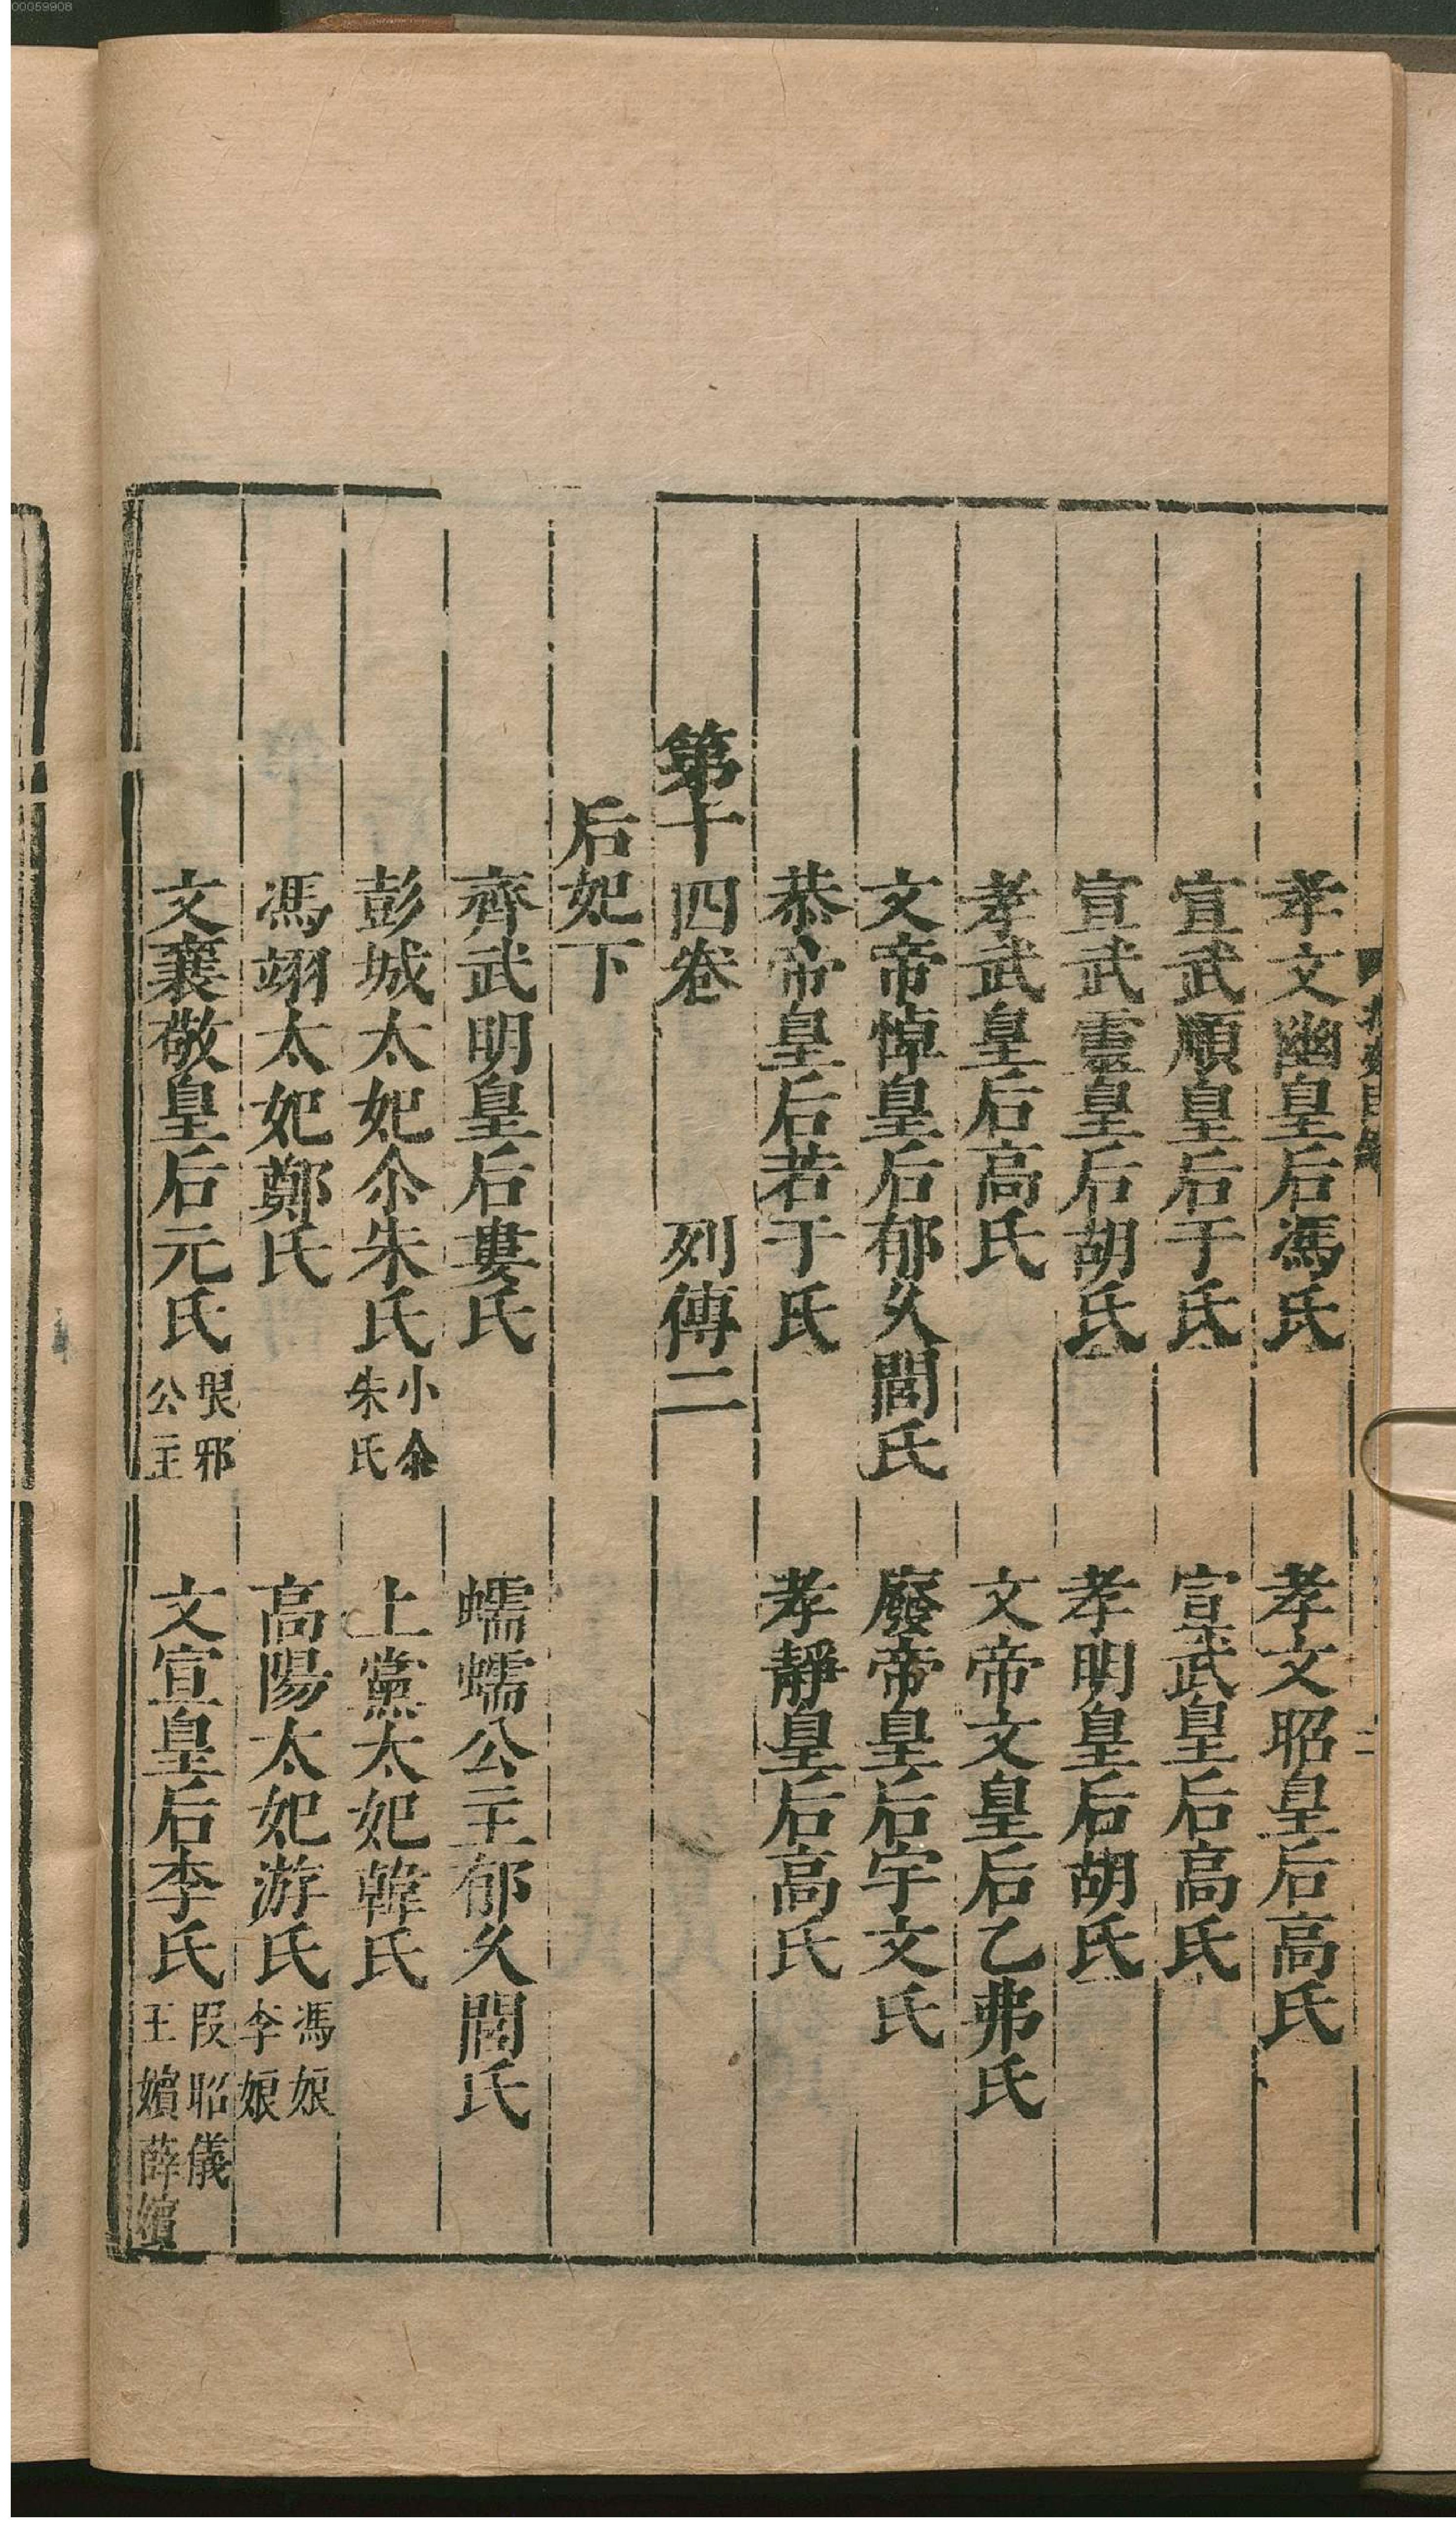 00059908
孝文幽皇后馮氏　孝文昭皇后高氏
宣武順皇后于氏　宣武皇后高氏
宣武靈皇后胡氏　孝明皇后胡氏
孝武皇后高氏　文帝文皇后乙弗氏
文帝悼皇后郁久閭氏　廢帝皇后宇文氏
恭帝皇后若于氏　孝靜皇后高氏
第十四卷　列傳二
后妃下
齊武明皇后婁氏　蠕蠕公主郁久閭氏
彭城太妃尒朱氏小尒朱氏　上黨太妃韓氏
馮翊太妃鄭氏　高陽太妃游氏馮娘李娘
文襄敬皇后元氏琅邪公主　文宣皇后李氏段昭儀王嬪薛嬪